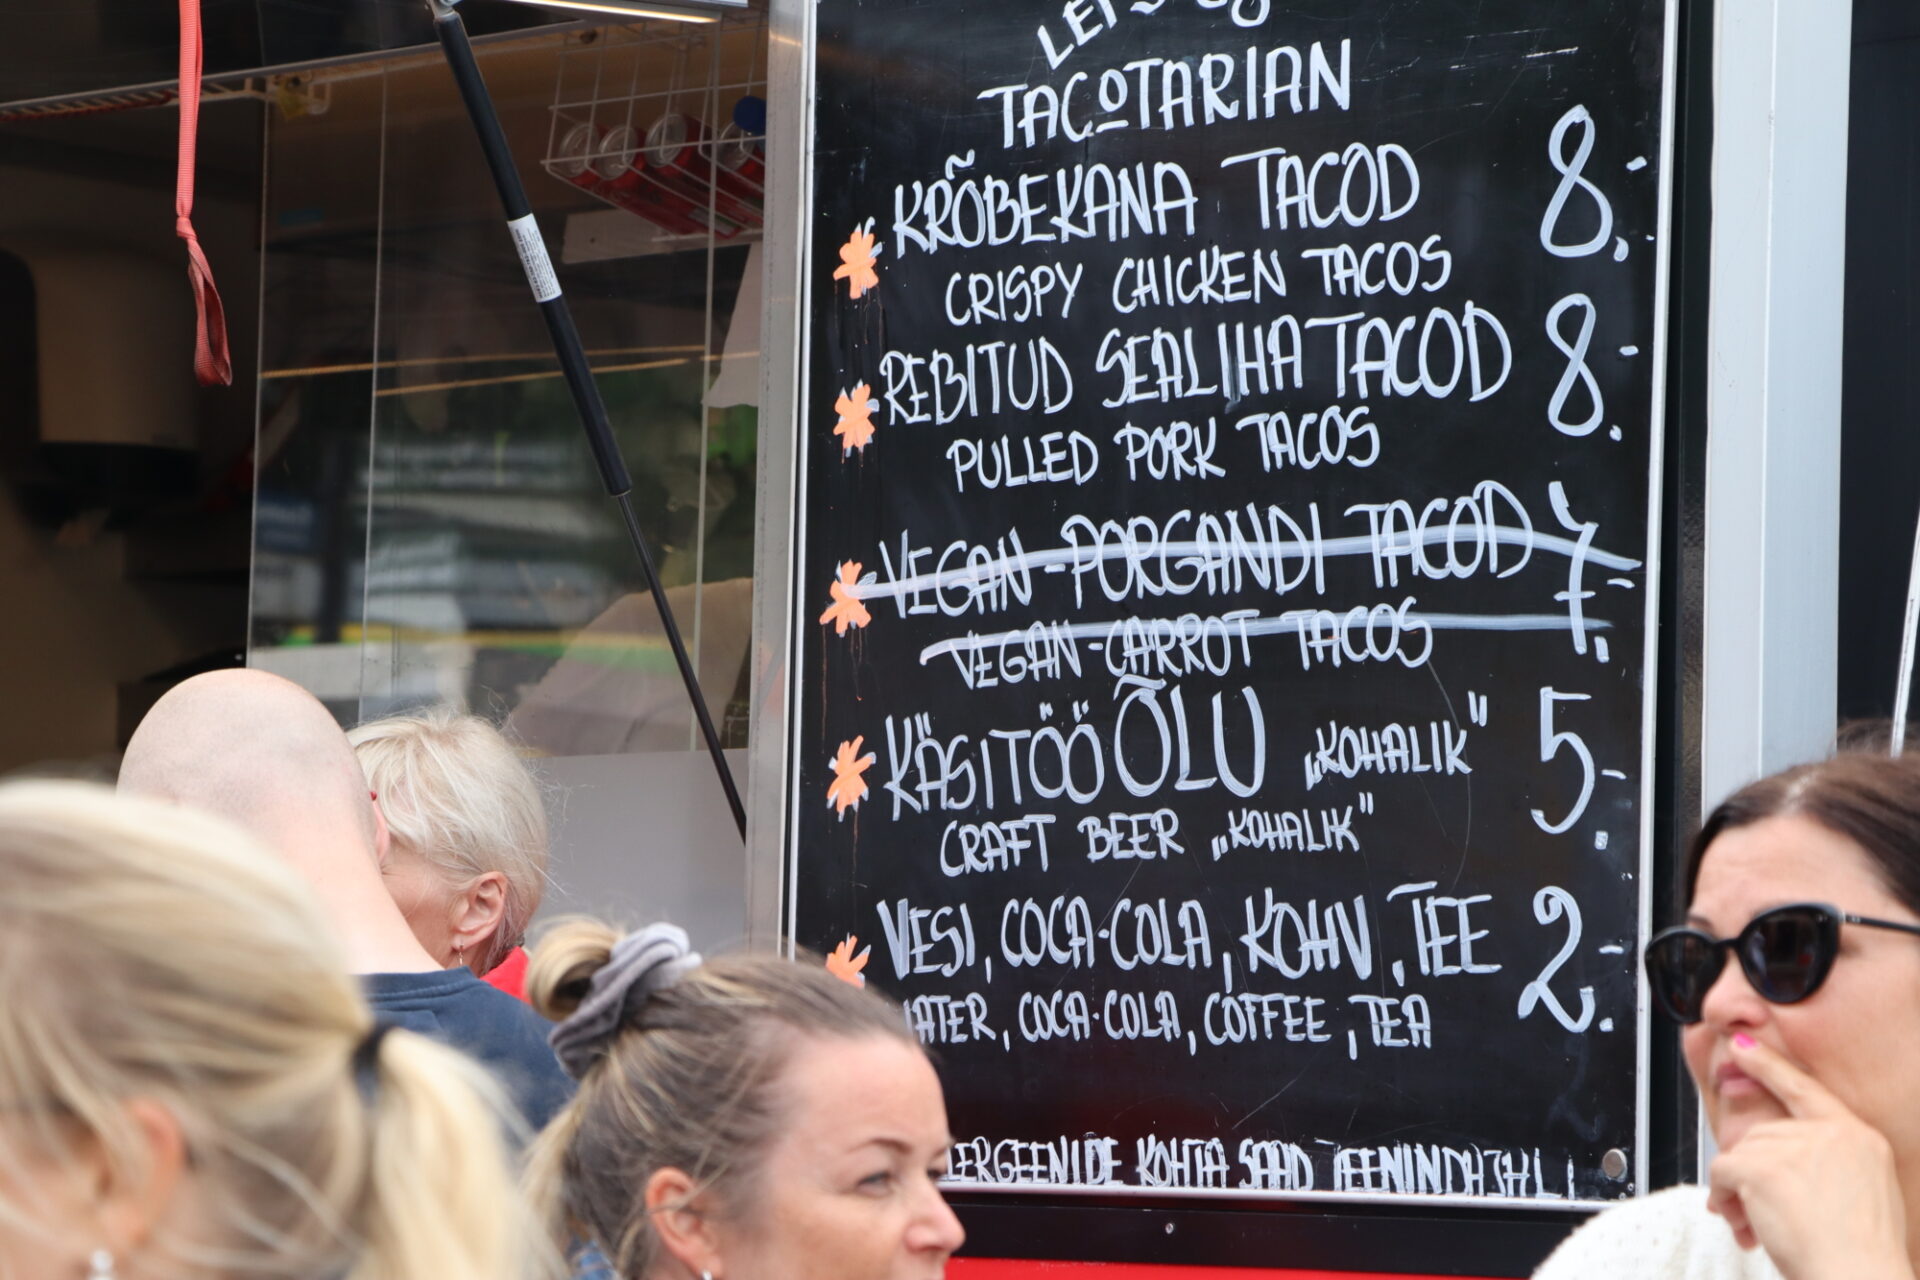 LET'S GO
TACOTARIAN
KRÕBEKANA TACOD 8.-
CRISPY CHICKEN TACOS
REBITUD SEALIHA TACOD 8.-
PULLED PORK TACOS
VEGAN-PORGANDI TACOD 7.-
VEGAN-CARROT TACOS
KÄSITÖÖ ÕLU „KOHALIK" 5.-
CRAFT BEER „KOHALIK"
VESI, COCA-COLA, KOHV, TEE 2.-
WATER, COCA-COLA, COFFEE, TEA
LERGEENIDE KOHTA SAAD TEENINDAJALT